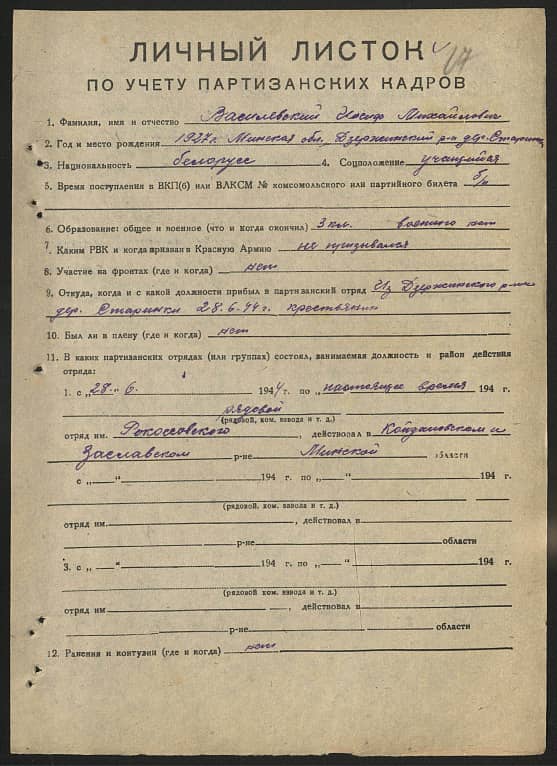 67
ЛИЧНЫЙ ЛИСТОК
ПО УЧЕТУ ПАРТИЗАНСКИХ КАДРОВ
1. Фамилия, имя и отчество Василевский Иосиф Михайлович
2. Год и место рождения 1927 г. Минская обл, Дзержинский р-н дер. Старинки
3. Национальность белорусс 4. Соцположение учащийся
5. Время поступления в ВКП(б) или ВЛКСМ № комсомольского или партийного билета б/п
6. Образование: общее и военное (что и когда окончил) 3 кл. военного нет
7. Каким РВК и когда призван в Красную Армию не призывался
8. Участие на фронтах (где и когда) нет
9. Откуда, когда и с какой должности прибыл в партизанский отряд Из Дзержинского р-на
дер. Старинки 28.6.44 г. крестьянин
10. Был ли в плену (где и когда) нет
11. В каких партизанских отрядах (или группах) состоял, занимаемая должность и район действия
отряда:
1. с „28" 6. 1944 г. по „настоящее время 194 г.
рядовой
(рядовой, ком. взвода и т. д.)
отряд им. Рокоссовского, действовал в Койдановском и
Заславском р-не Минской области
с „—" 194 г. по „—" 194 г.
(рядовой, ком. взвода и т. д.)
отряд им. , действовал в
р-не области
3. с „—" 194 г. по „—" 194 г.
(рядовой, ком. взвода и т. д.)
отряд им , действовал в
р-не области
12. Ранения и контузии (где и когда) нет